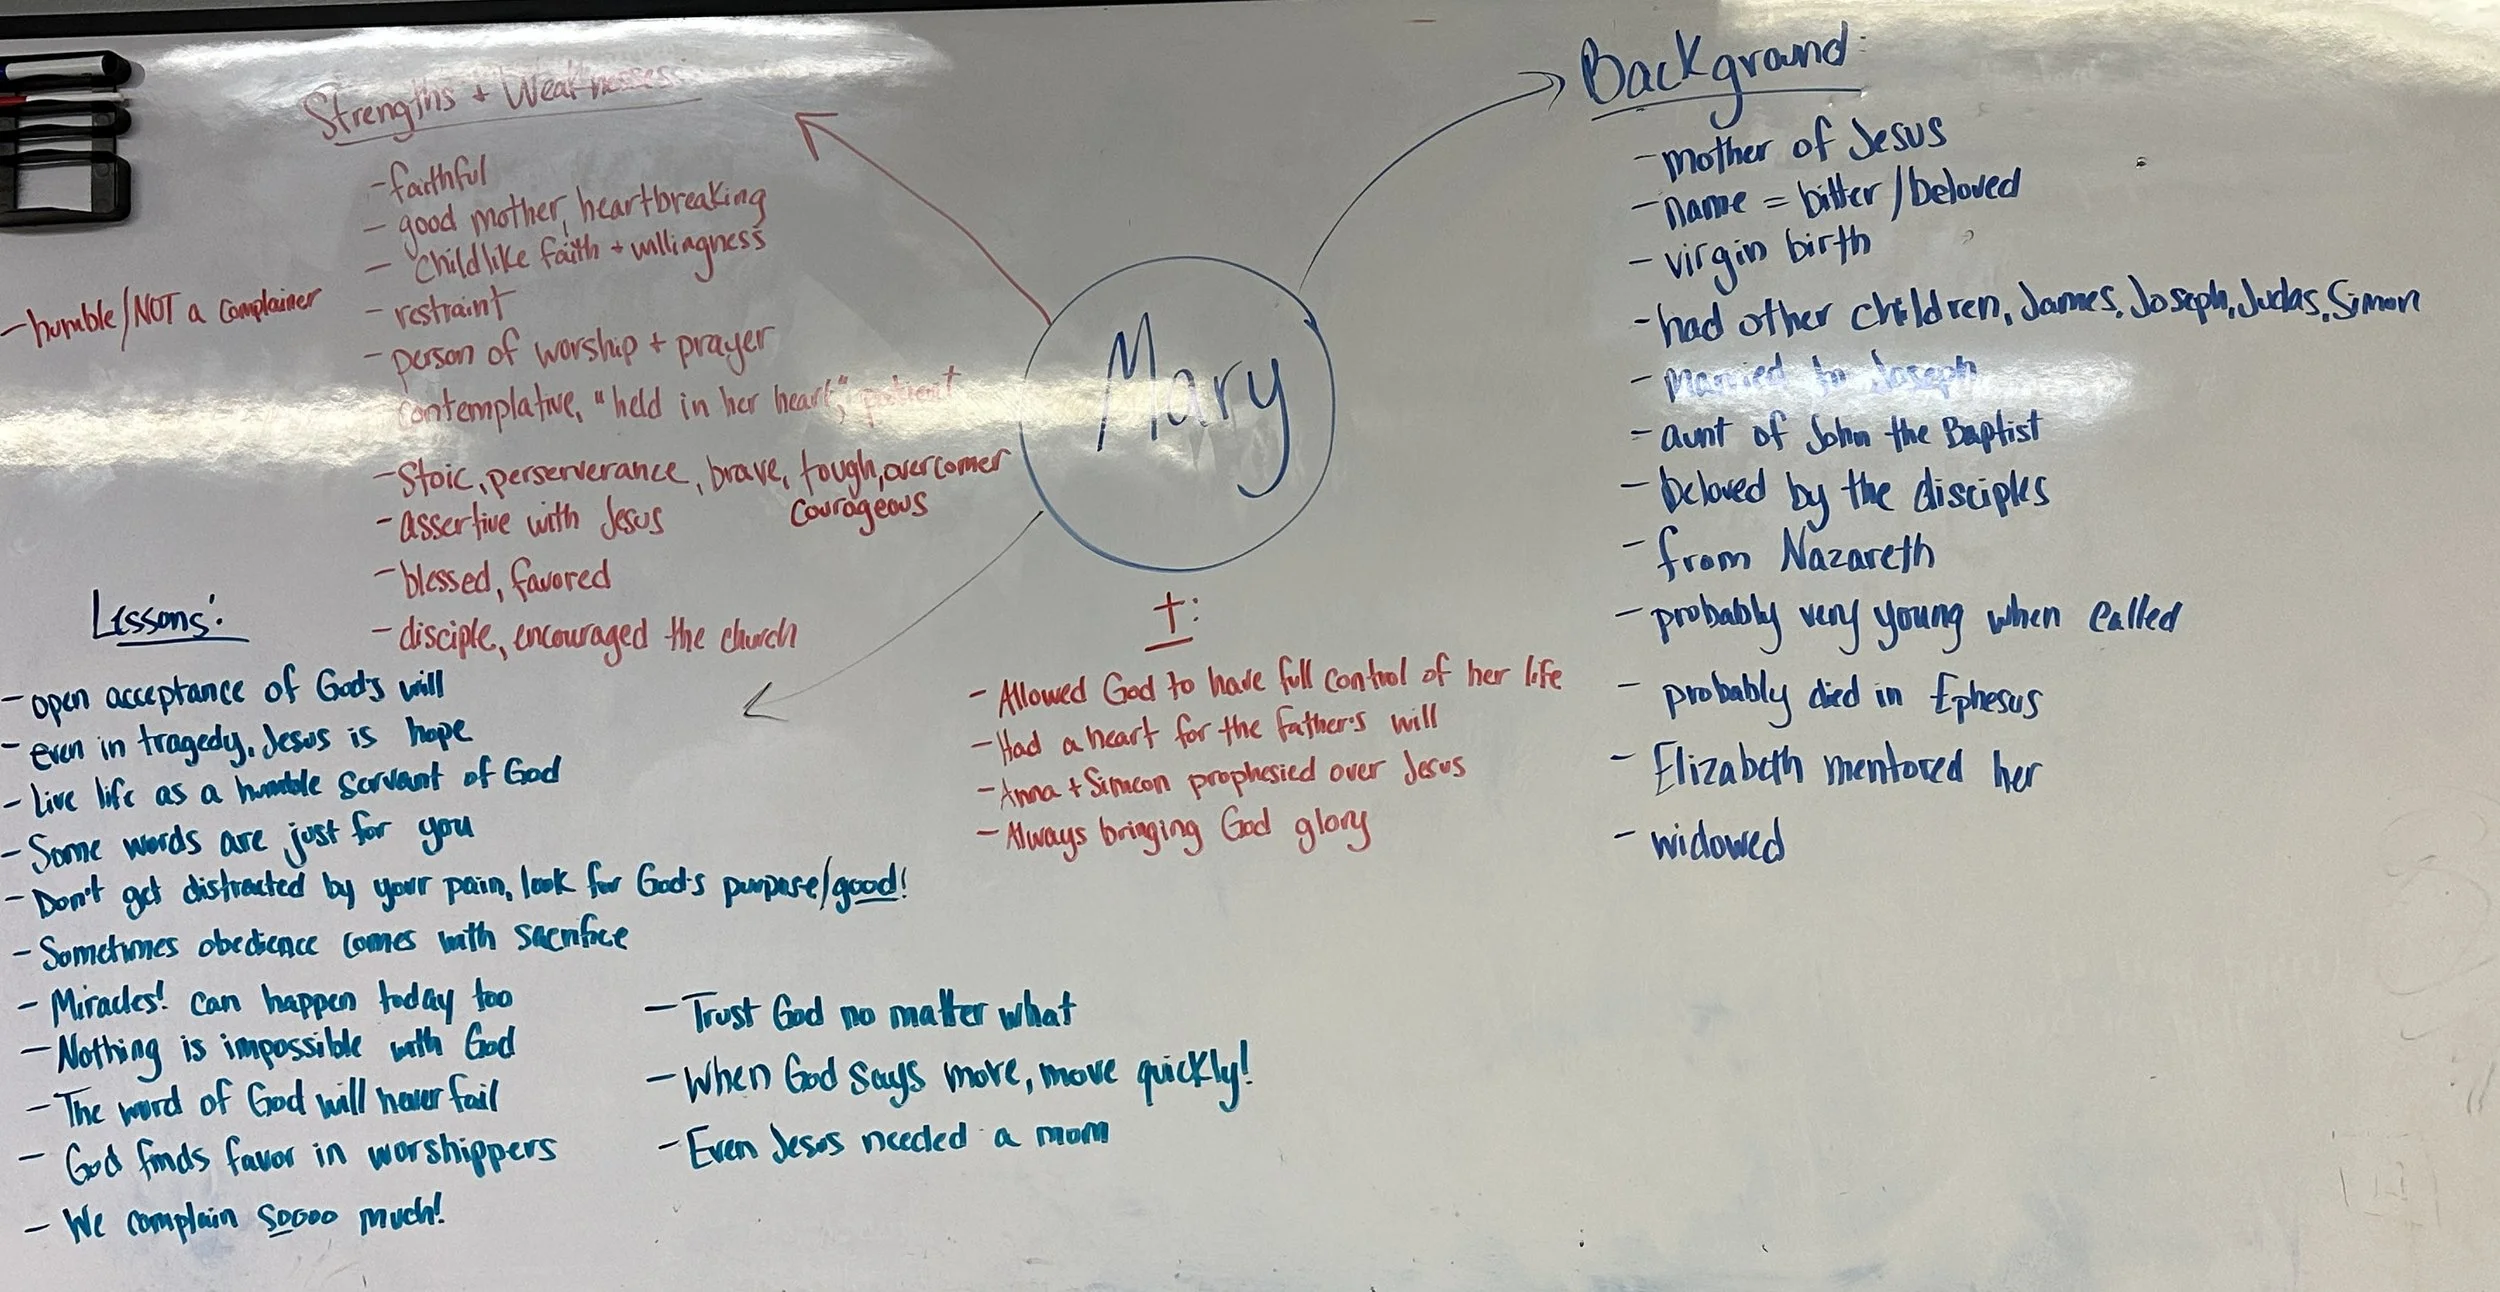 Strengths + Weaknesses:
- faithful
- good mother, heartbreaking
- Childlike faith + willingness
- restraint
- humble/NOT a complainer
- person of worship + prayer
contemplative, "held in her heart," patient
- Stoic, perserverance, brave, tough, overcomer
courageous
- assertive with Jesus
- blessed, favored
- disciple, encouraged the church
Mary
Background:
- mother of Jesus
- name = bitter/beloved
- virgin birth
- had other children, James, Joseph, Judas, Simon
- married to Joseph
- aunt of John the Baptist
- beloved by the disciples
- from Nazareth
- probably very young when called
- probably died in Ephesus
- Elizabeth mentored her
- widowed
†:
- Allowed God to have full control of her life
- Had a heart for the Father's will
- Anna + Simeon prophesied over Jesus
- Always bringing God glory
Lessons:
- open acceptance of God's will
- even in tragedy, Jesus is hope
- Live life as a humble servant of God
- Some words are just for you
- Don't get distracted by your pain, look for God's purpose/good!
- Sometimes obedience comes with sacrifice
- Miracles! can happen today too
- Nothing is impossible with God
- The word of God will never fail
- God finds favor in worshippers
- We complain soooo much!
- Trust God no matter what
- When God says move, move quickly!
- Even Jesus needed a mom